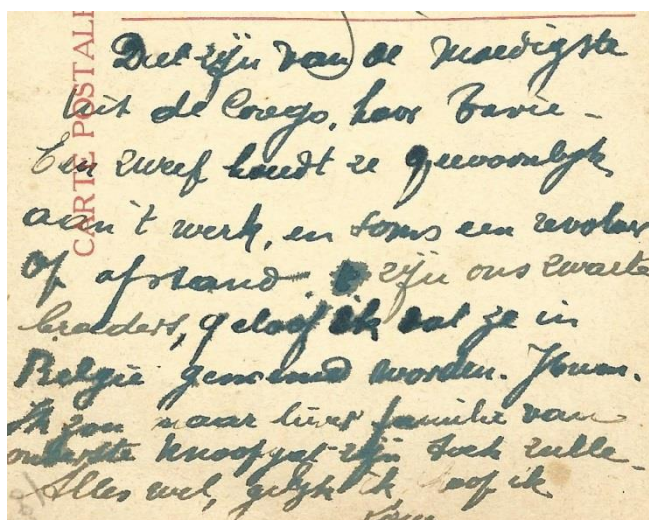 CARTE POSTALE
Dat zijn van de moedigste
uit de Congo, hoor
Een zweef houdt ze gewoonlijk
aan 't werk, en soms een revolver
op afstand zijn ons zwarte
broeders, geloof ik dat ze in
België genoemd worden.
Ik zou naar liever familie van
knoopgat zijn toch zulle
Alles wel, gelijk ik hoop ik